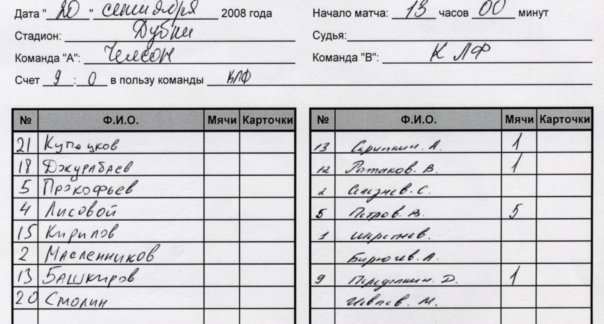 Дата " 20 " сентября 2008 года Начало матча: 13 часов 00 минут
Стадион: Дубки Судья:
Команда "А": Челсон Команда "В": КЛФ
Счет 9 : 0 в пользу команды КЛФ
№ Ф.И.О. Мячи Карточки № Ф.И.О. Мячи Карточки
21 Купацков 13 А. 1
18 Джурабаев 12 В. 1
5 Прокофьев 2 С.
4 Лисовой 5 Петров В. 5
15 Кирилов 1
2 Масленников Бирючев А.
13 Башкиров 9 Д. 1
20 Смолин Ивлев М.